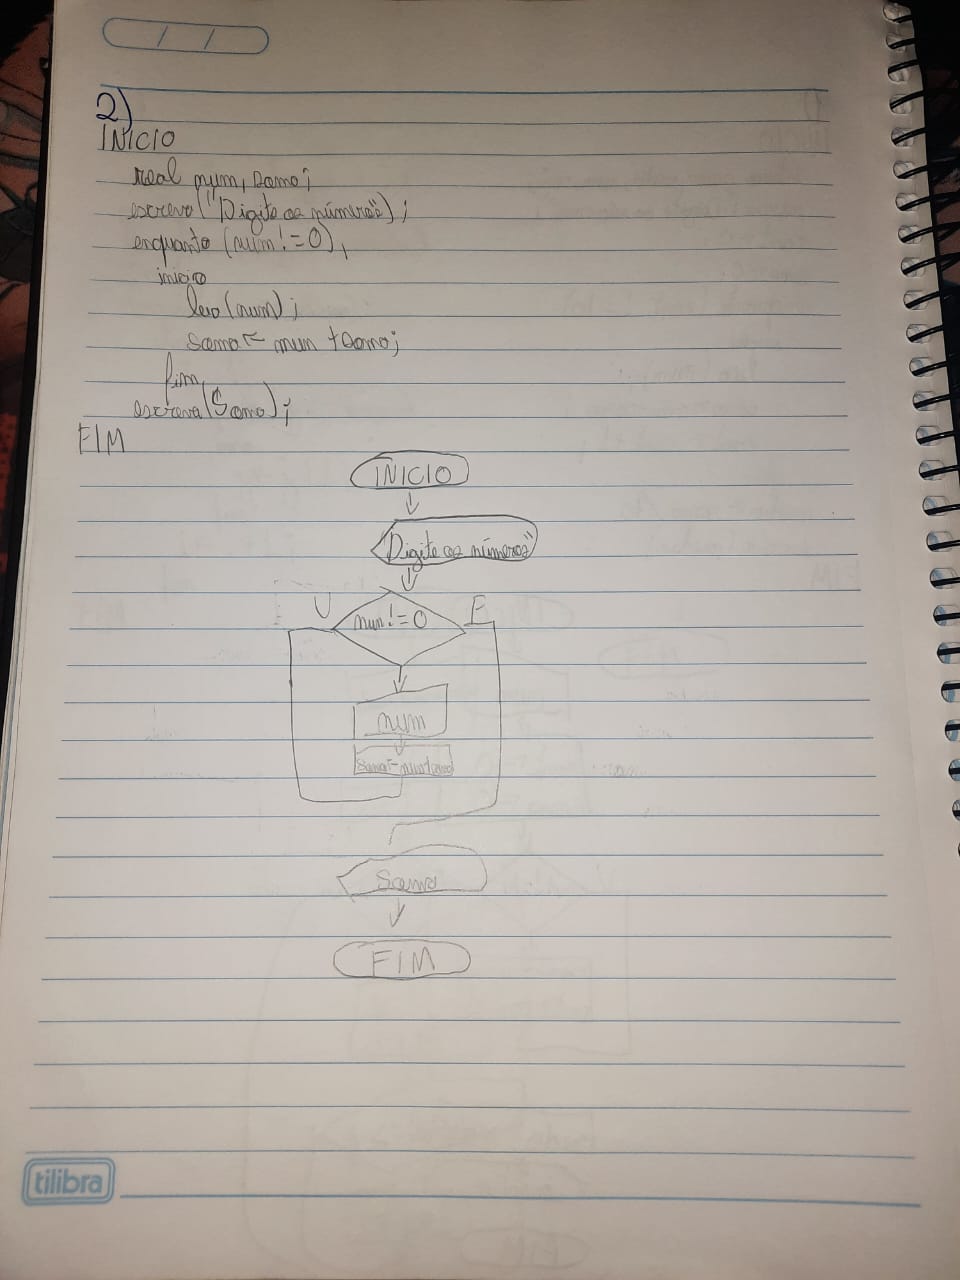 2)
INICIO
real num, soma;
escreva("Digite os números");
enquanto (num != 0),
inicio
leia (num);
soma ← num + soma;
fim
escreva(Soma);
FIM
INICIO
"Digite os números"
V num != 0 F
num
soma ← num + soma
Soma
FIM
tilibra